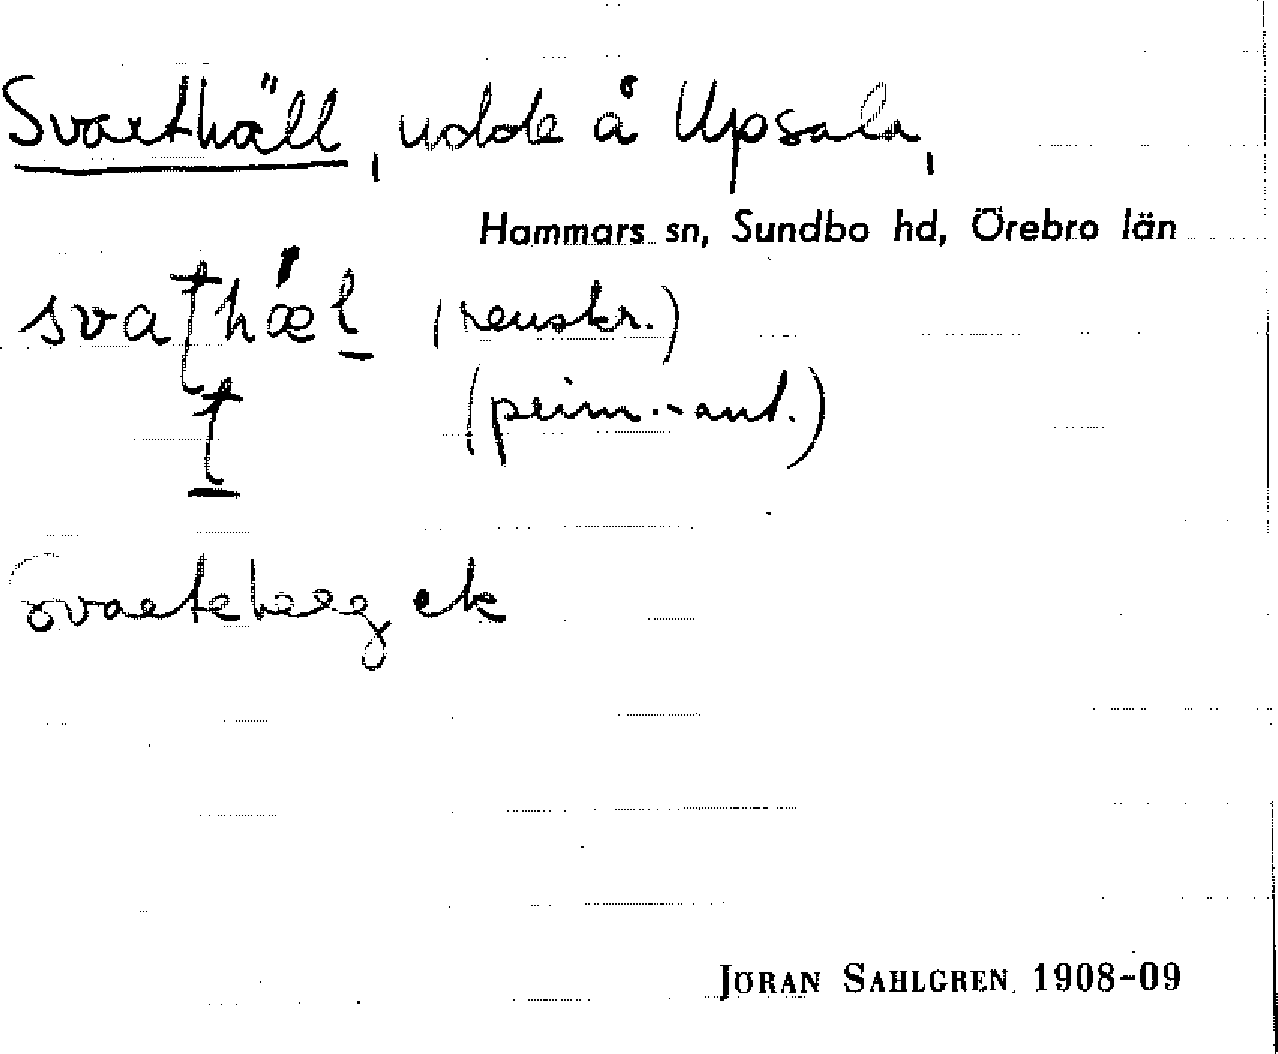 Svarthäll, udde å Upsala,
Hammars sn, Sundbo hd, Örebro län
svathæl (renskr.)
t (prim.-ant.)
Svarteberg ek
JÖRAN SAHLGREN 1908-09